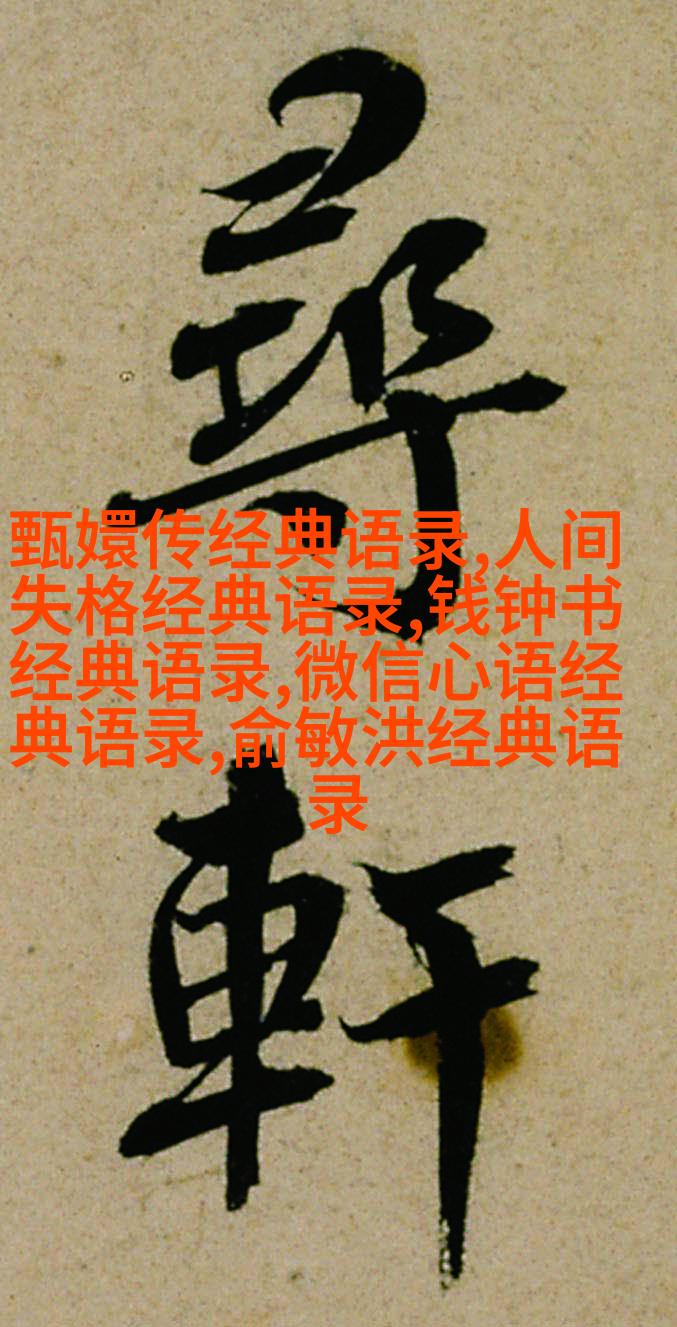 尋
軒
甄嬛传经典语录,人间
失格经典语录,钱钟书
经典语录,微信心语经
典语录,俞敏洪经典语
录